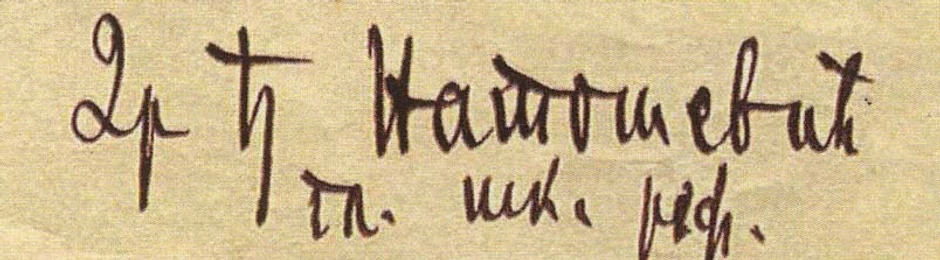 Др Ђ Натошевић
гл. шк. реф.